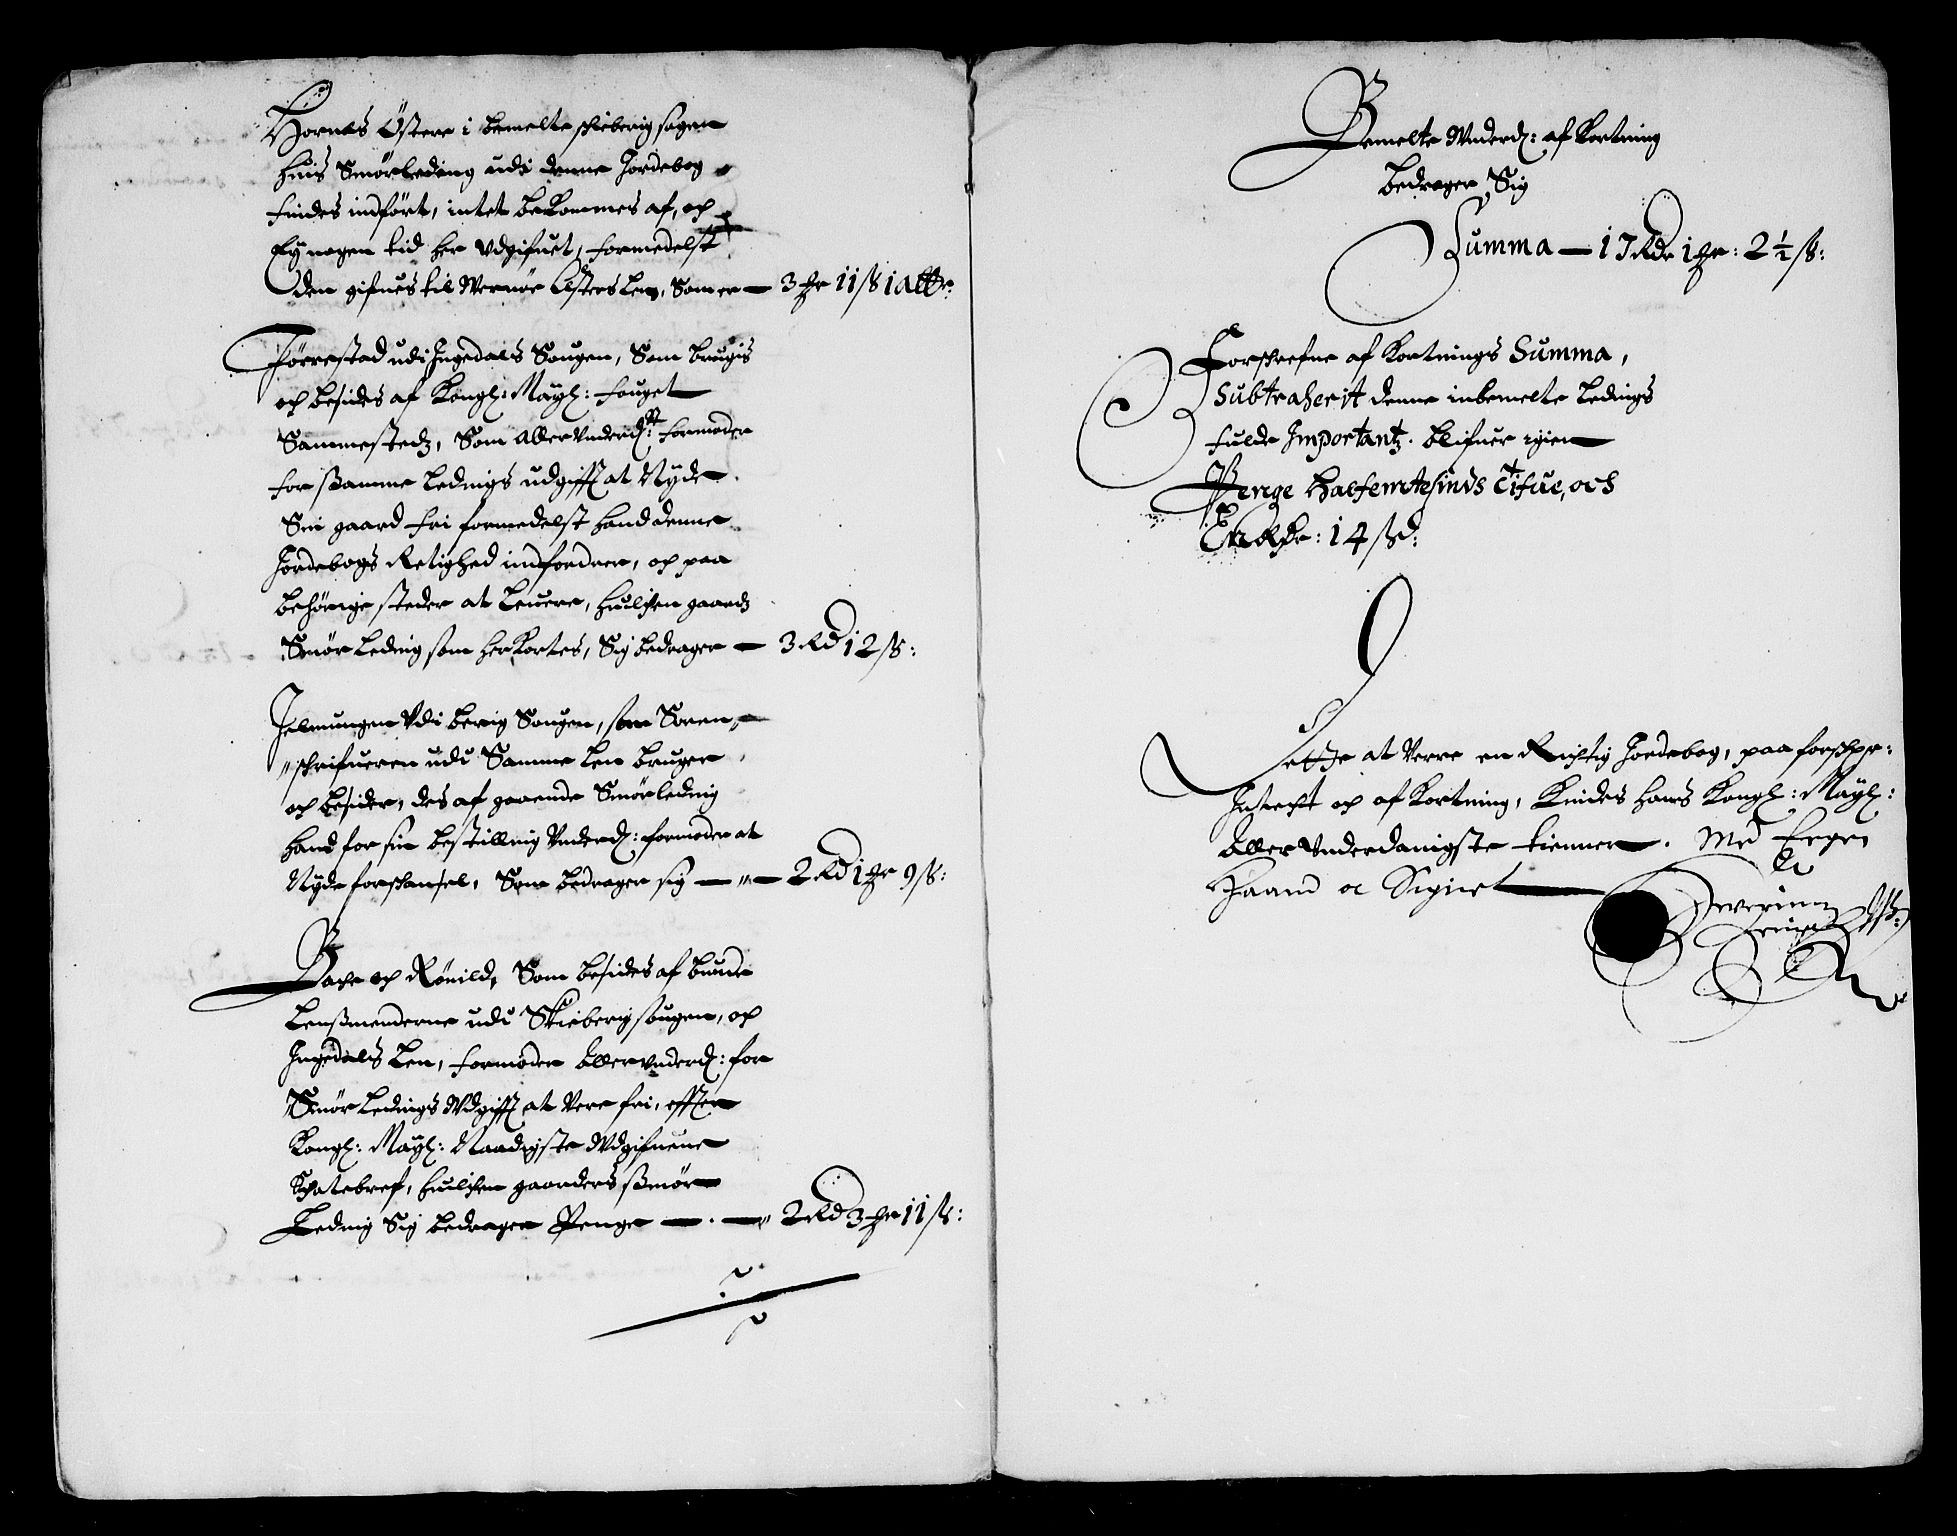 Hornes Östere i bemelte schieberig sogen
huis Smörleding udi denne Jordebog
findes indfört, intet bekommes af, och
Ey nogen tid her udgifuet, formedelst
den gifues til Wernöe Closters Len, Som er — 3 hr 11 ß 1 alb
Törrestad udi Ingedals Sougen, Som brugis
och besides af Kongl: Mayt: fouget
Sammestedz, Som allerunderdst: formoder
for ßamme ledings udgifft at Nyde
Sin gaard fri formedelst hand denne
Jordebogs Retighed indfordrer, och paa
behörige steder at leuere, huilchen gaardz
Smör leding som her kortes, Sig bedrager — 3 Rd 12 ß:
Jelmungen Udi berrig Sougen, som Soren-
schrifueren udi Samme len bruger
och besider, des af gaaende Smörleding
hand for sin bestilling Underd: formoder at
Nyde forschaansel, Som bedrager sig — 2 Rd 1 hr 9 ß:
och Röuild, Som besides af bunde
Lensmenderne udi Skieberig sougen, och
Ingedals Len, formoder allerunderd: for
Smör ledings Udgifft at Vere fri, effter
Kongl: Mayt: Naadigste Udgifuene
Schatebref, huilchen gaarders ßmör
Leding Sig bedrager Penge — 2 Rd 3 hr 11 ß:
Bemelte Underd: af Kortning
bedrager Sig
Summa — 17 Rdr 1 hr: 2½ ß:
Forschrefne af Kortnings Summa,
Subtraherit denne inbemelte ledings
fulde Importantz. blifuer igien
Penge Halfemtesinds Tifue, och
14 ß d:
Dette at Verre en Richtig Jordebog, paa forschr:
Indtecht och af Kortning, Kindes hans Kongl: Mayt:
Aller Underdanigste tienner. Med Egen
Haand oc Signet